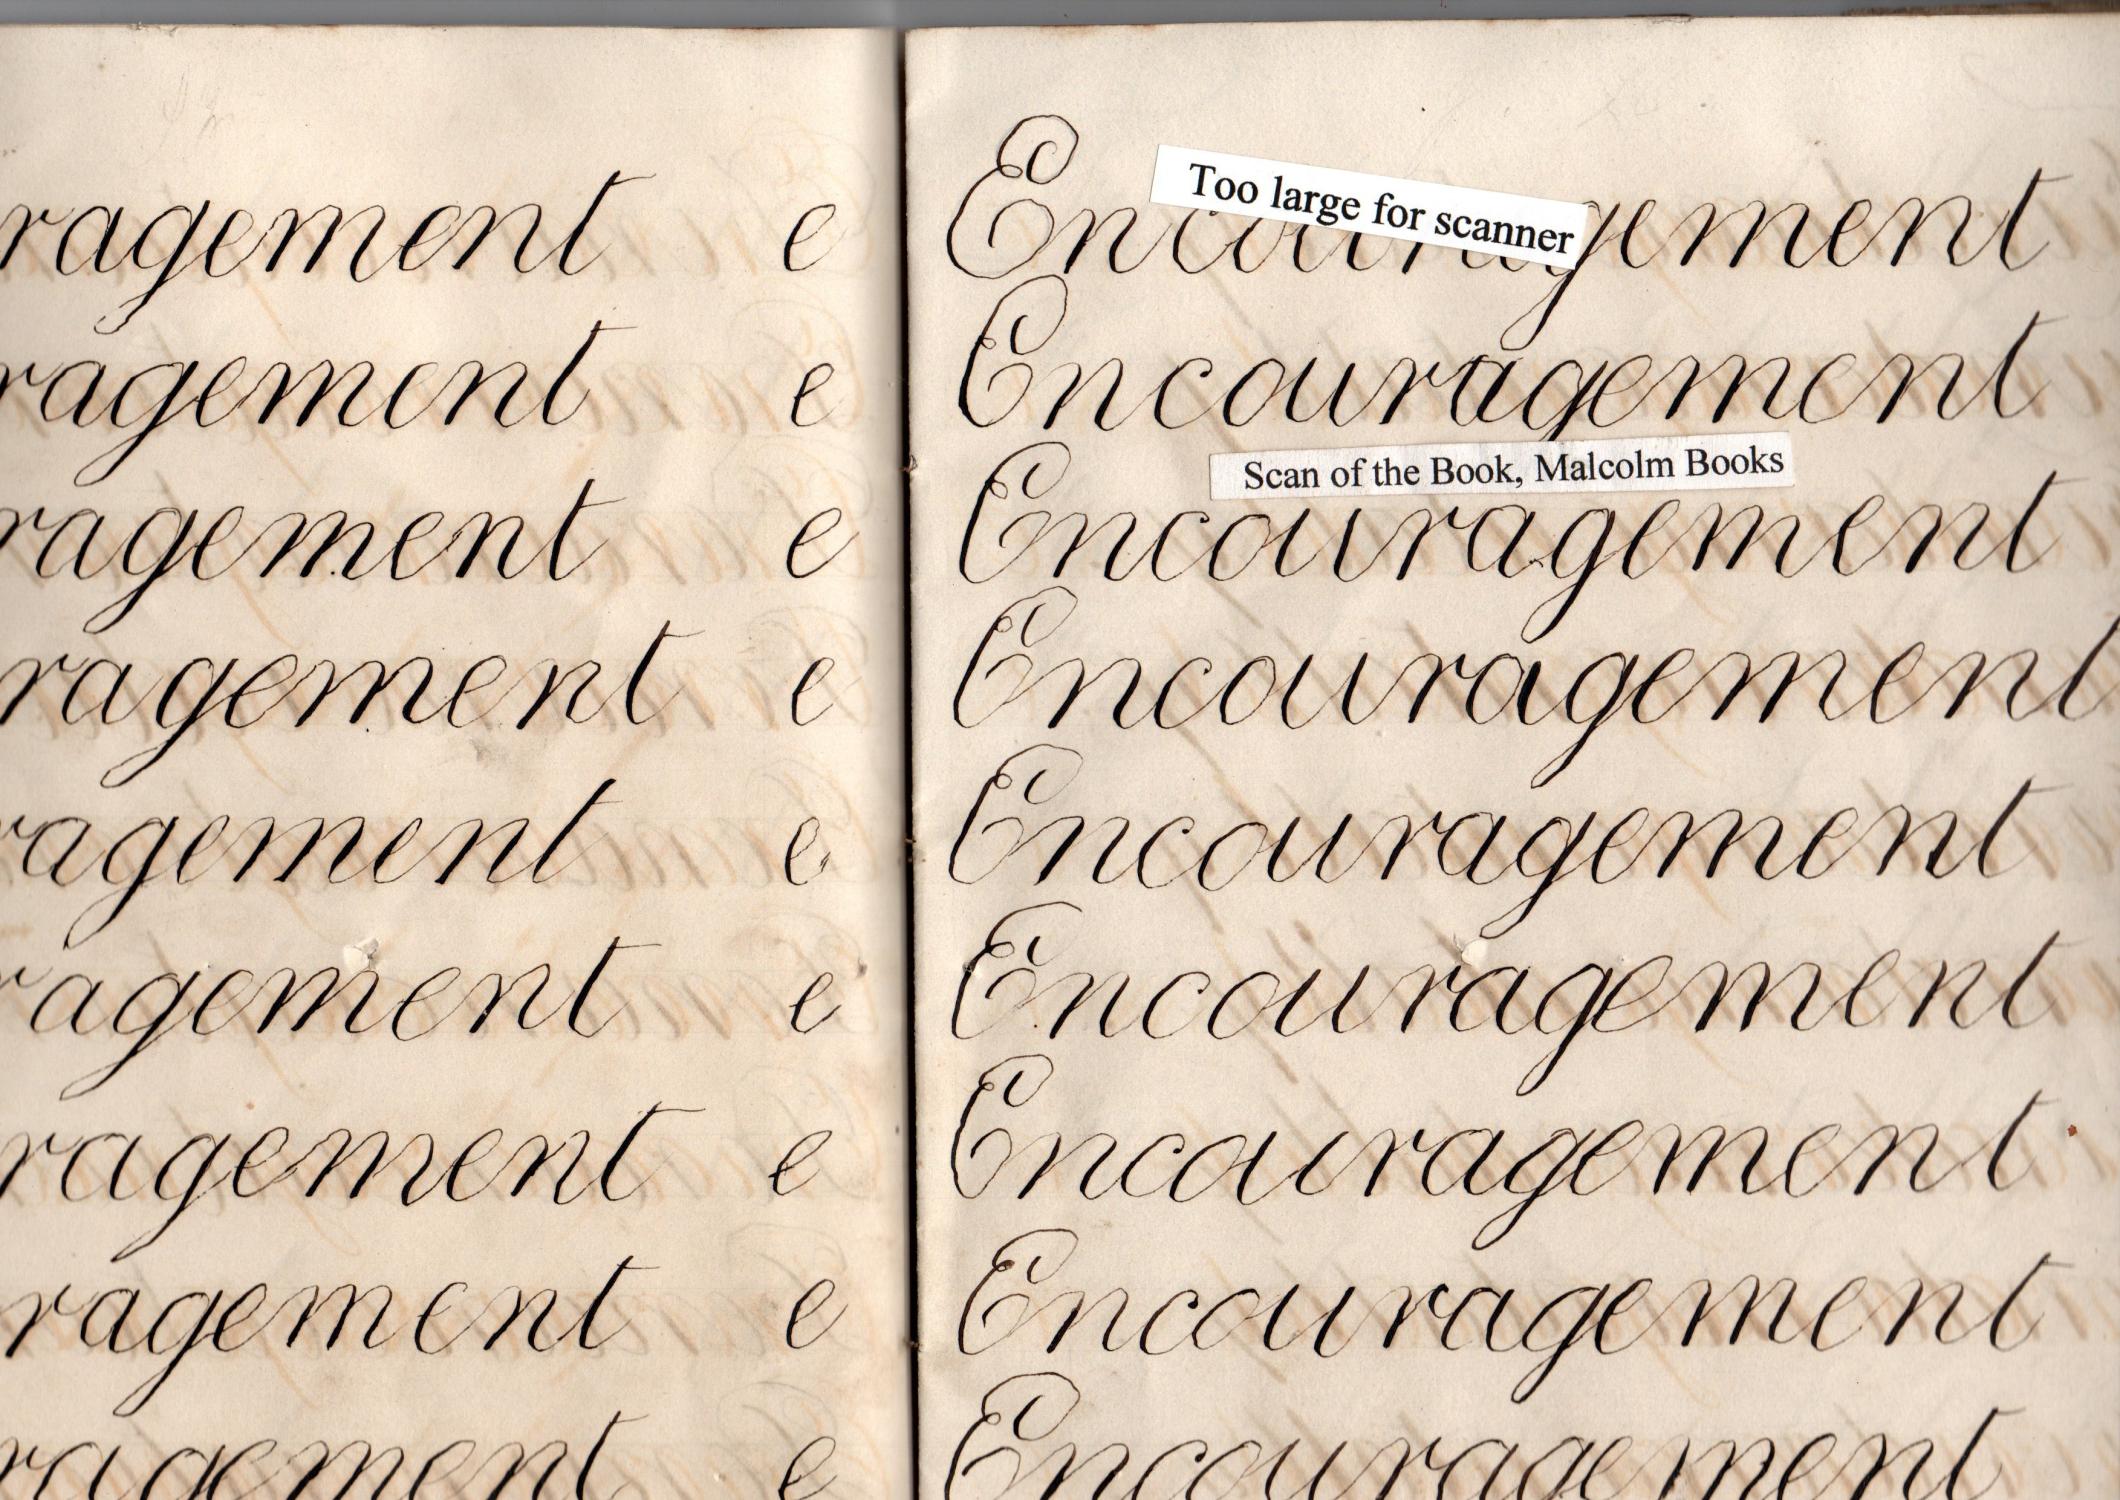 ragement e
ragement e
ragement e
ragement e
ragement e
ragement e
ragement e
ragement e
ragement e
Encouragement
Too large for scanner
Encouragement
Scan of the Book, Malcolm Books
Encouragement
Encouragement
Encouragement
Encouragement
Encouragement
Encouragement
Encouragement